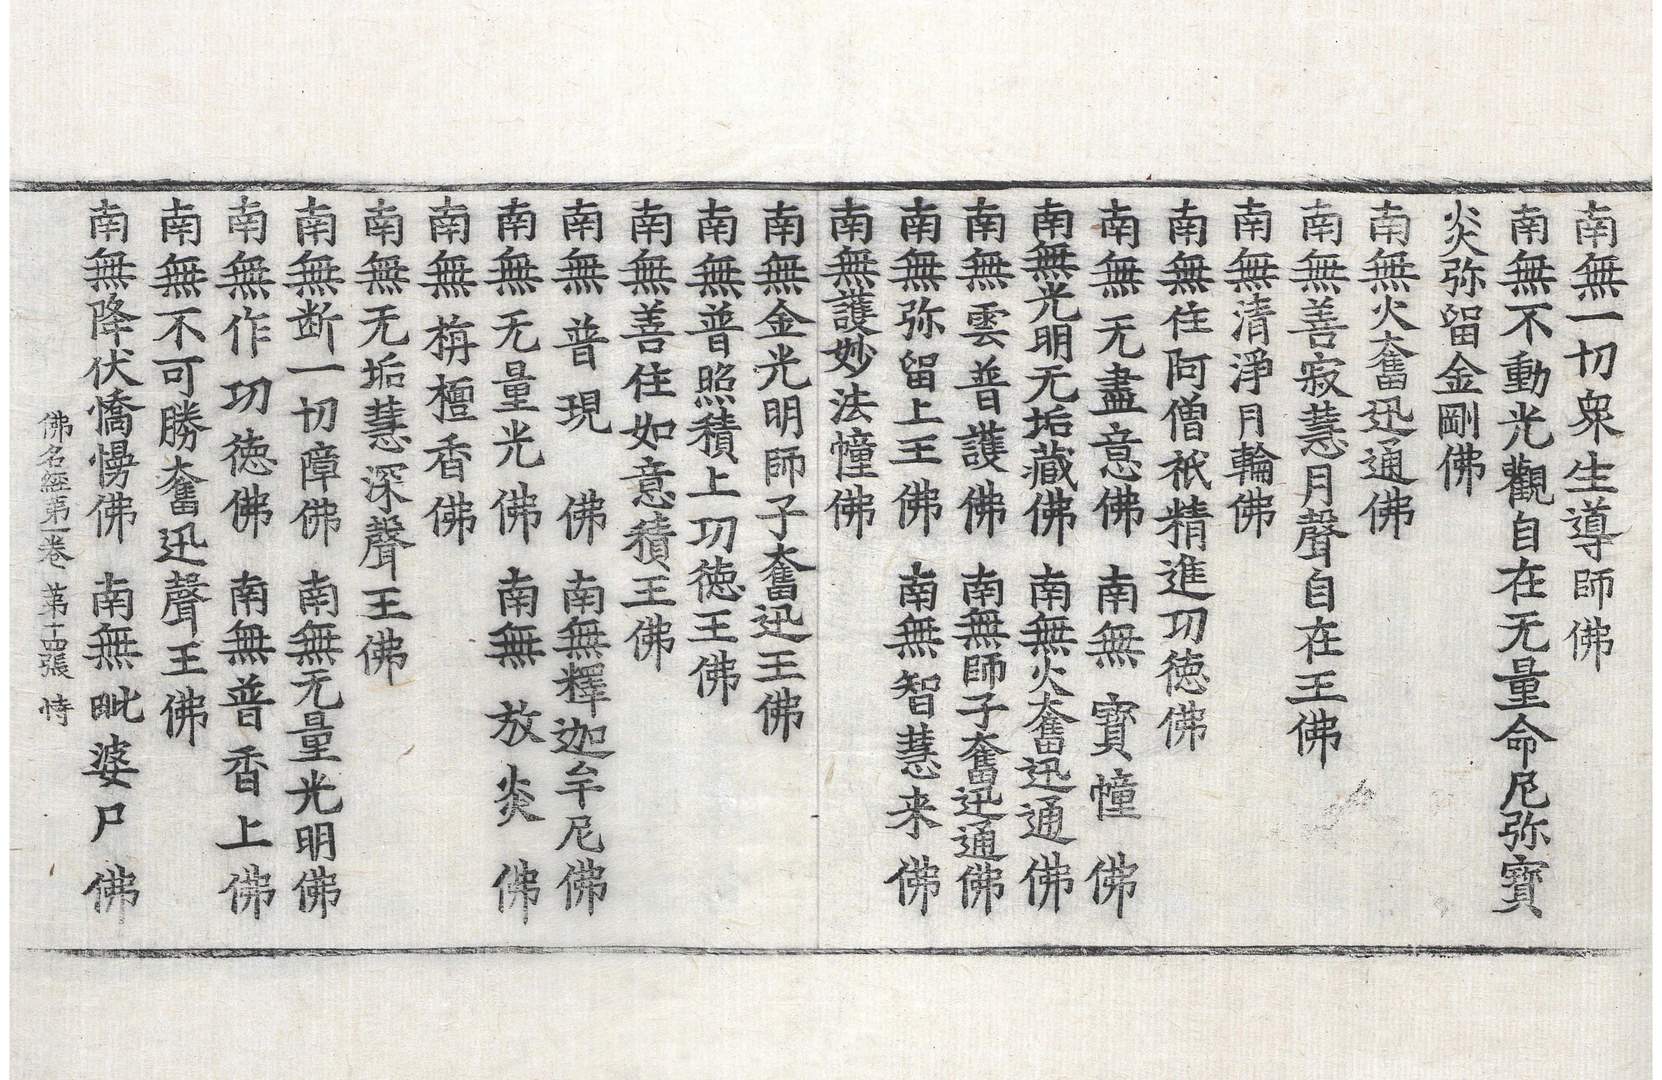 南無一切衆生導師佛
南無不動光觀自在无量命尼弥寶
炎弥留金剛佛
南無火奮迅通佛
南無善寂慧月聲自在王佛
南無清淨月輪佛
南無住阿僧祇精進功徳佛
南無无盡意佛 南無寶幢佛
南無光明无垢藏佛 南無火奮迅通佛
南無雲普護佛 南無師子奮迅通佛
南無弥留上王佛 南無智慧来佛
南無護妙法幢佛
南無金光明師子奮迅王佛
南無普照積上功徳王佛
南無善住如意積王佛
南無普現佛 南無釋迦牟尼佛
南無无量光佛 南無放炎佛
南無栴檀香佛
南無无垢慧深聲王佛
南無断一切障佛 南無无量光明佛
南無作功徳佛 南無普香上佛
南無不可勝奮迅聲王佛
南無降伏憍慢佛 南無毗婆尸佛
佛名經第一卷 第十四張 恃